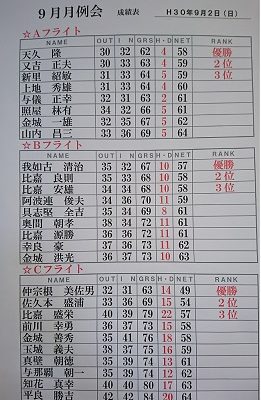 9月月例会 成績表 H30年9月2日(日)
☆Aフライト
NAME OUT IN GRS H・D NET RANK
天久 隆 30 32 62 4 58 優勝
又吉 正夫 31 32 63 5 58 2位
新里 紹敏 31 33 64 5 59 3位
上地 秀雄 31 33 64 4 60
与儀 正幸 31 32 63 2 61
照屋 林有 34 32 66 5 61
金城 一雄 32 35 67 5 62
山内 昌三 33 36 69 5 64
☆Bフライト
NAME OUT IN GRS H・D NET RANK
我如古 清治 35 32 67 10 57 優勝
比嘉 良則 35 33 68 10 58 2位
比嘉 安雄 34 34 68 10 58 3位
阿波連 俊夫 34 36 70 11 59
具志堅 全吉 35 34 69 8 61
奥間 朝孝 38 34 72 11 61
比嘉 源勝 36 36 72 11 61
幸良 豪 37 36 73 11 62
金城 洪光 36 38 74 10 64
☆Cフライト
NAME OUT IN GRS H・D NET RANK
仲宗根 美佐男 32 31 63 14 49 優勝
佐久本 盛浦 33 36 69 15 54 2位
比嘉 盛栄 40 39 79 22 57 3位
前川 幸勇 36 37 73 15 58
金城 善秀 35 41 76 18 58
玉城 義夫 38 37 75 16 59
真壁 朝徳 35 39 74 13 61
与那覇 朝一 36 36 72 10 62
知花 真幸 40 40 80 17 63
平良 勝吉 42 42 84 20 64